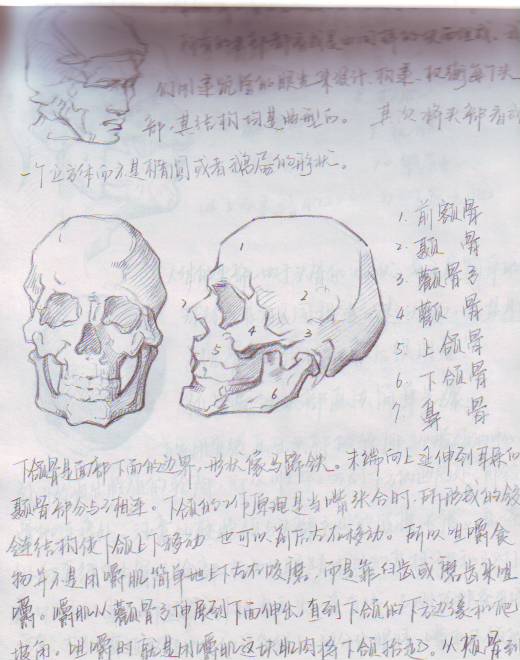 所有的头部都看成是由同样的
们用建筑general的眼光来设计、构造、权衡每个头
部,其结构均是典型的。 其次将头部看成
一个立方体而不是椭圆或者鸡蛋的形状。
1. 前额骨
2. 颞 骨
3. 颧骨弓
4. 颧 骨
5. 上颌骨
6. 下颌骨
7. 鼻 骨
1
2
3
4
5
6
7
下颌骨是面部下面的边界,形状像马蹄铁。末端向上延伸到耳朵的
颞骨部分与之相连。下颌的工作原理是当嘴张合时,所形成的铰
链结构使下颌上下移动,也可以前后左右移动。所以咀嚼食
物并不是用嚼肌简单地上下左右咬磨,而是靠臼齿或磨齿来咀
嚼。嚼肌从颧骨弓伸展到下面伸出,直到下颌的下边缘和
咀嚼时就是用嚼肌这块肌肉将下颌抬起。从颊骨到